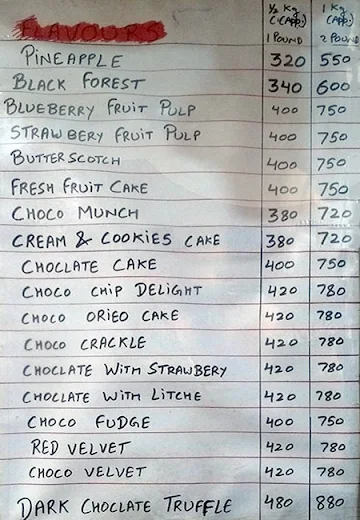 FLAVOURS ½ Kg (CApp) 1 POUND 1 Kg (CApp) 2 POUND
PINEAPPLE 320 550
BLACK FOREST 340 600
BLUEBERRY FRUIT PULP 400 750
STRAWBERY FRUIT PULP 400 750
BUTTERSCOTCH 400 750
FRESH FRUIT CAKE 400 750
CHOCO MUNCH 380 720
CREAM & COOKIES CAKE 380 720
CHOCLATE CAKE 400 750
CHOCO CHIP DELIGHT 420 780
CHOCO ORIEO CAKE 420 780
CHOCO CRACKLE 420 780
CHOCLATE WITH STRAWBERY 420 780
CHOCLATE WITH LITCHE 420 780
CHOCO FUDGE 400 750
RED VELVET 420 780
CHOCO VELVET 420 780
DARK CHOCLATE TRUFFLE 480 880